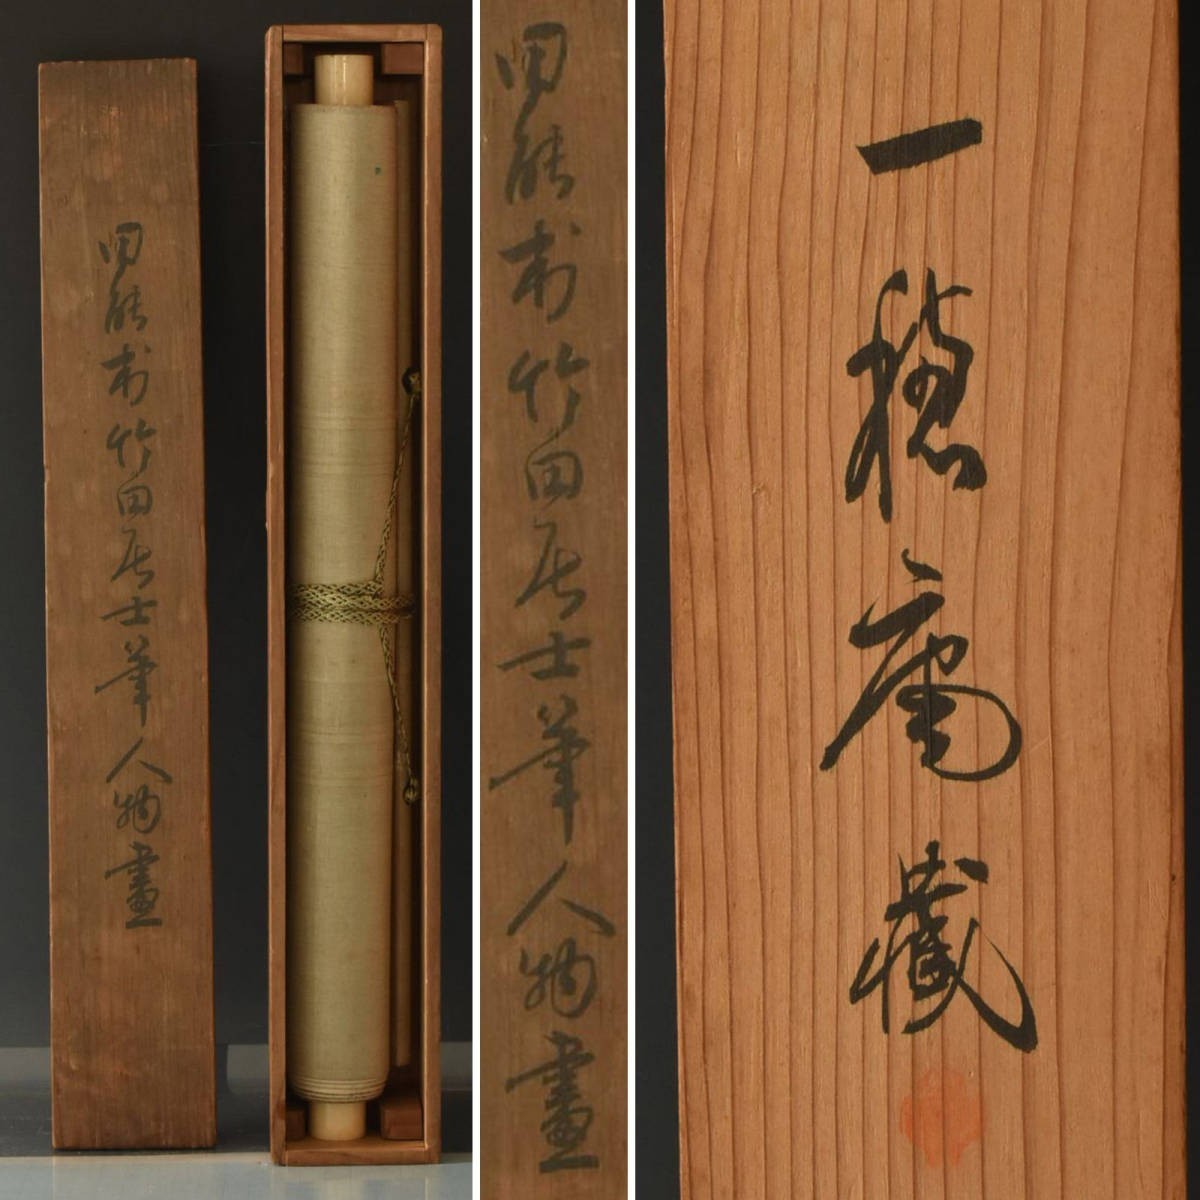 田能村竹田居士筆人物畫
田能村竹田居士筆人物畫
一穂庵藏